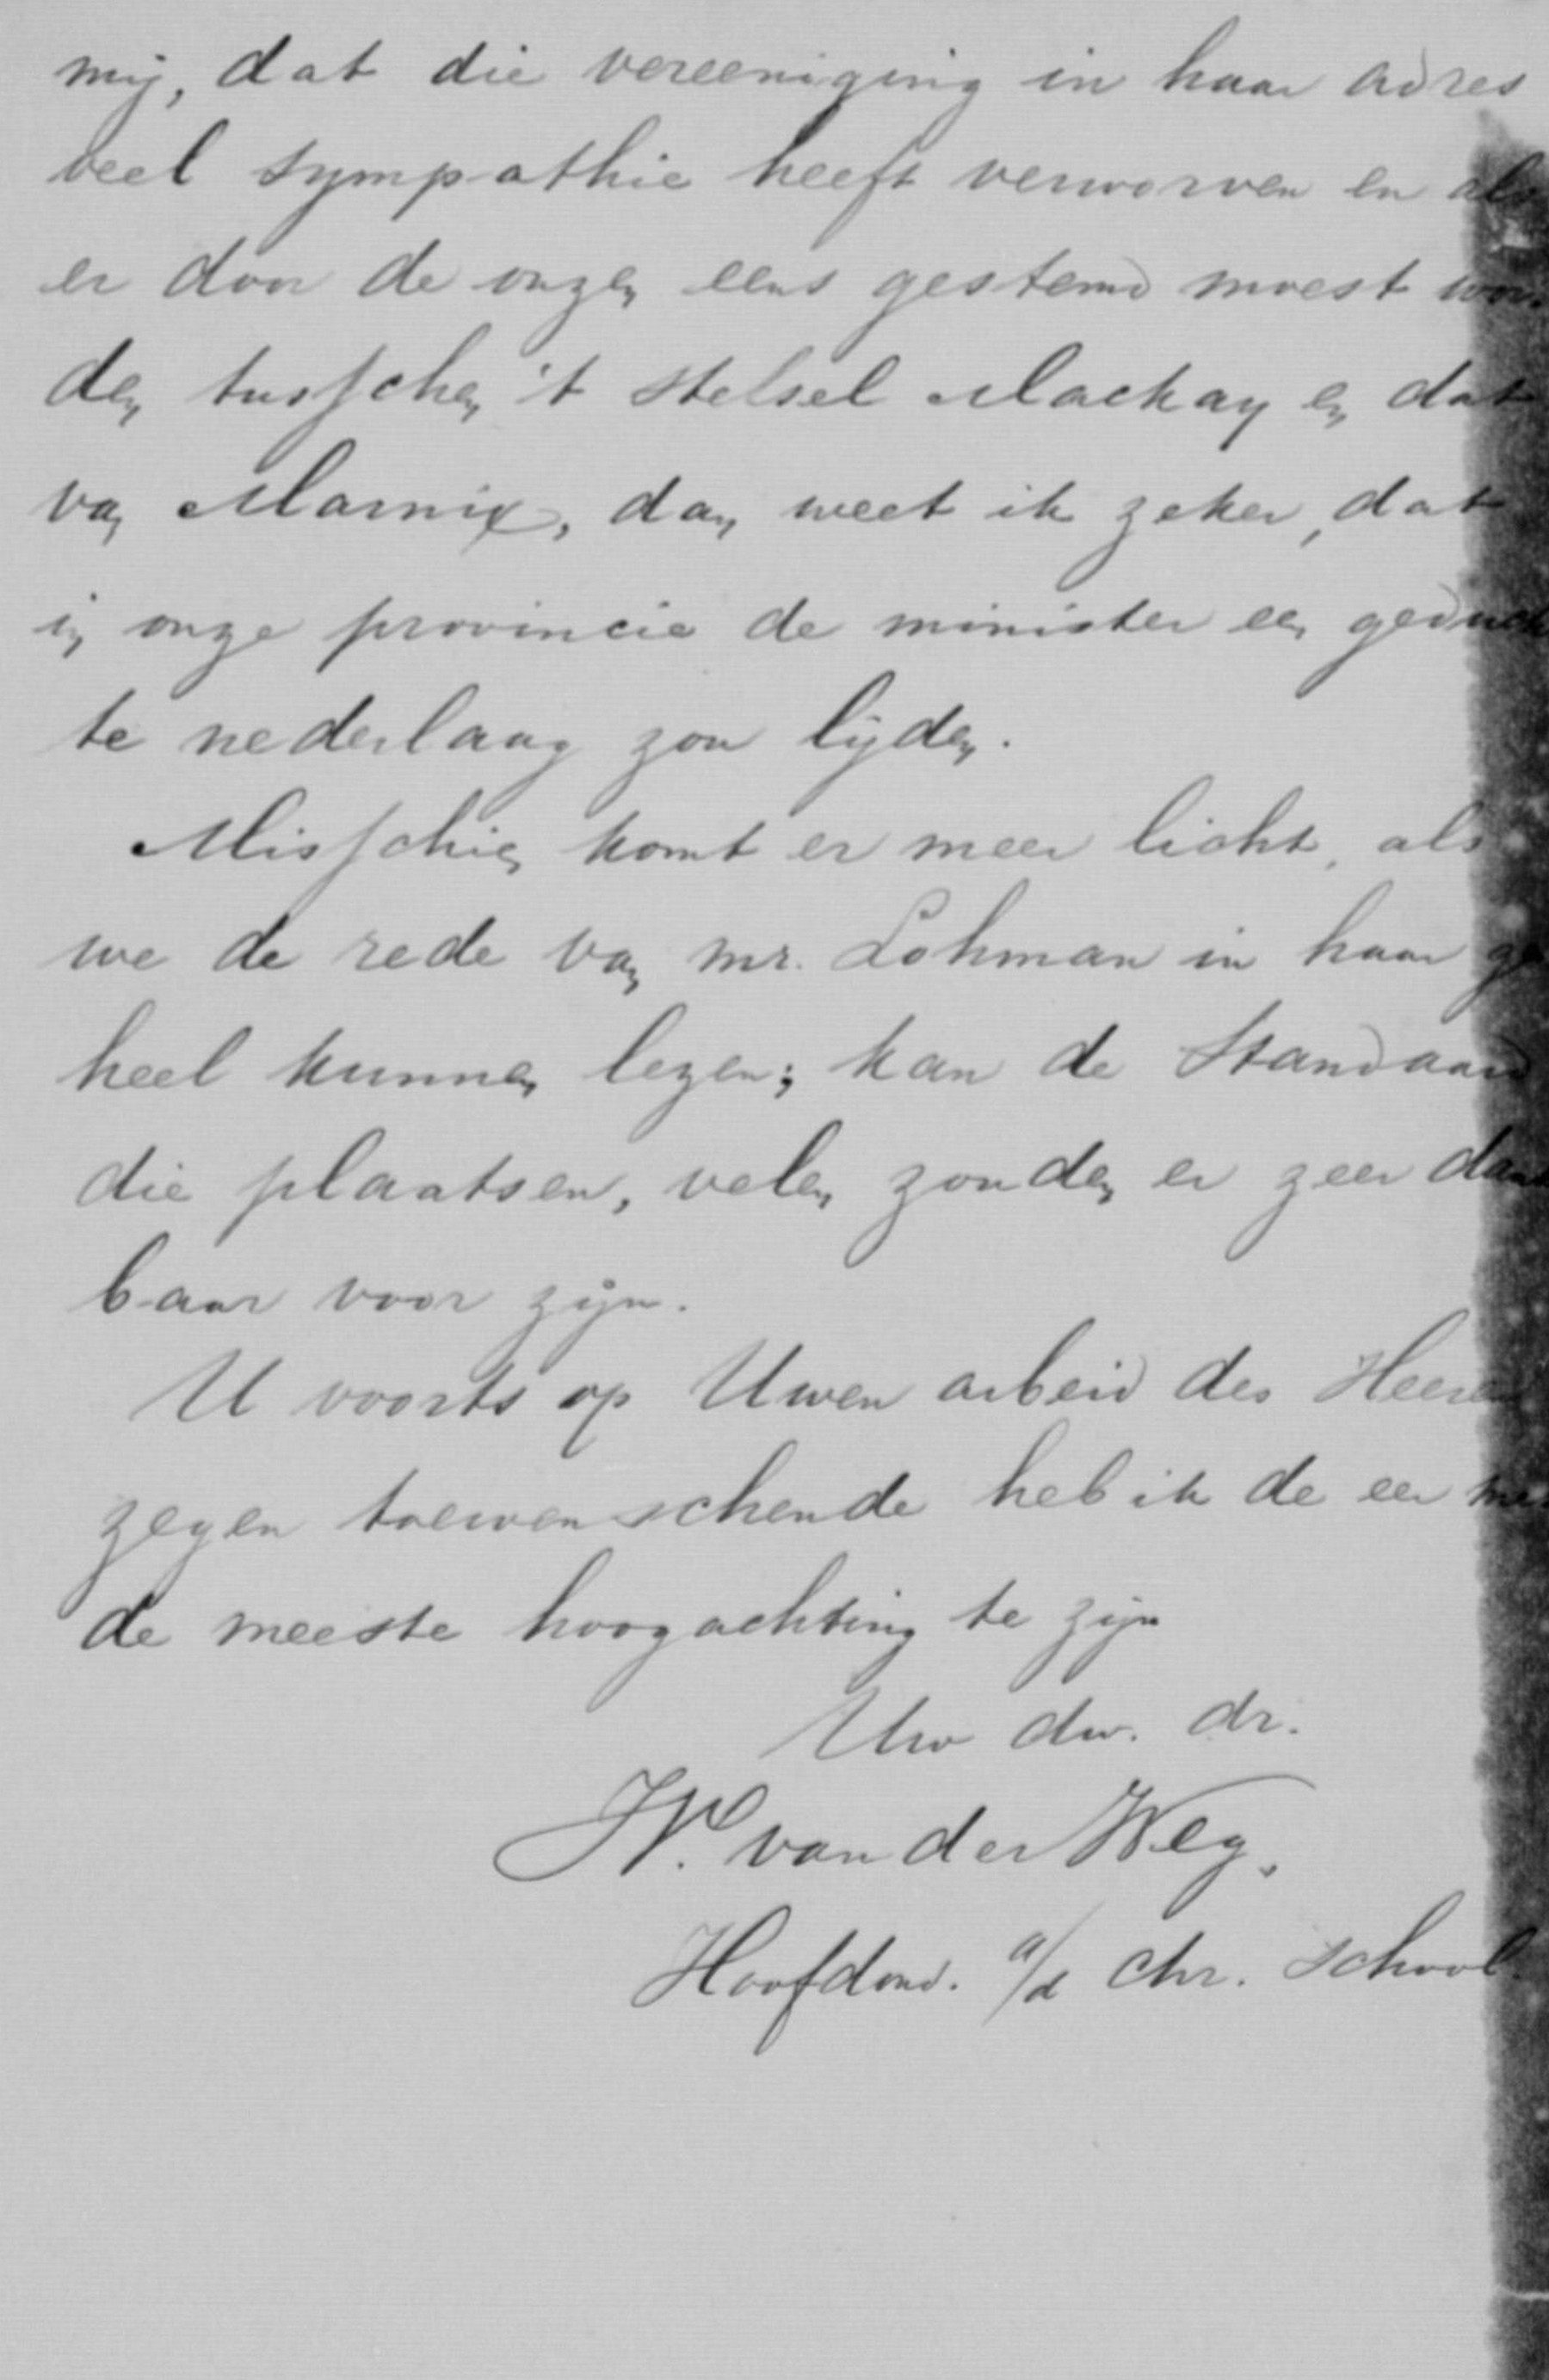 mij, dat die vereeniging in haar adres
veel sympathie heeft verworven en als
er door de onzen eens gestemd moest wor
den tusschen 't stelsel Mackay en dat
van Marnix, dan weet ik zeker, dat
in onze provincie de minister een geduch
te nederlaag zou lijden.
Misschien komt er meer licht, als
we de rede van mr. Lohman in haar ge
heel kunnen lezen; kan de Standaard
die plaatsen, velen zouden er zeer dank
baar voor zijn.
U voorts op Uwen arbeid des Heeren
zegen toewenschende heb ik de eer met
de meeste hoogachting te zijn
Uw dw. dr.
W. van der Weg.
Hoofdond. a/d Chr. School.